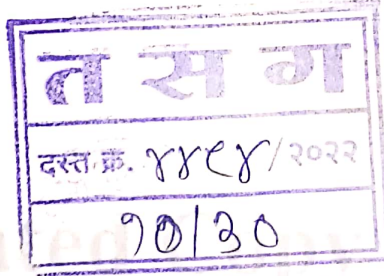 त स ग
दस्त क्र. ४४९४/२०२२
१०/३०